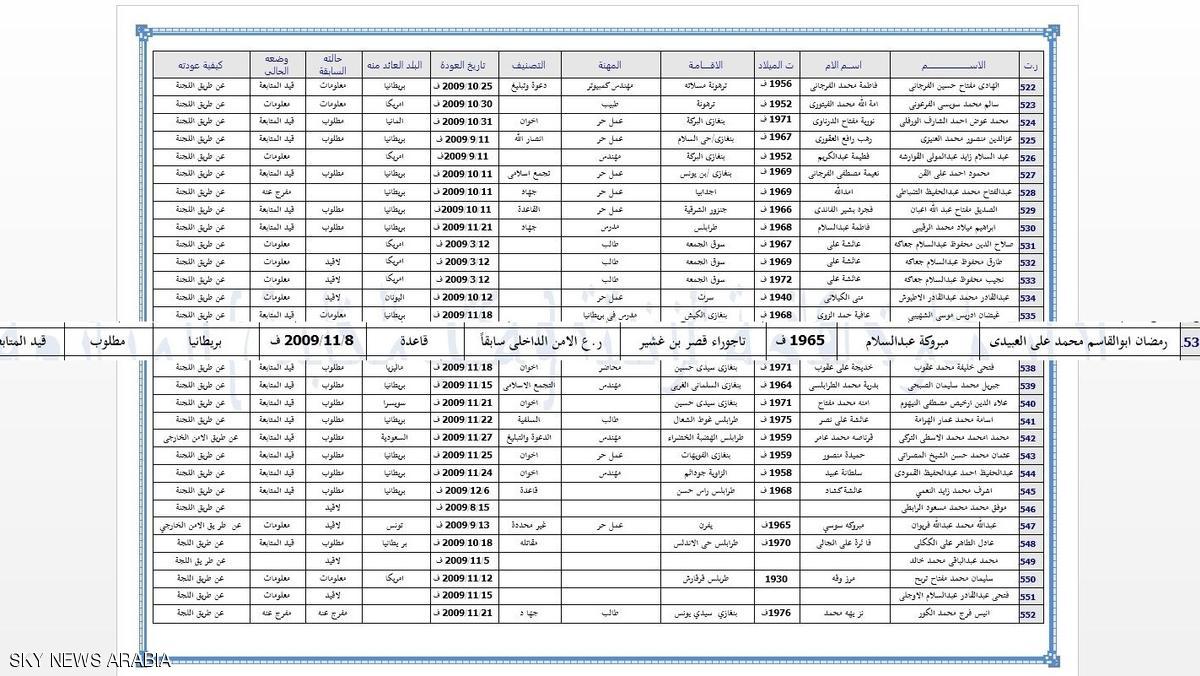 ر.ت الاســـــم اسـم الام ت الميلاد الاقـامـة المهنة التصنيف تاريخ العودة البلد العائد منه حالته السابقة وضعه الحالى كيفية عودته
522 الهادى مفتاح حسين الفرجانى فاطمة محمد الفرجانى 1956 ف ترهونة مسلاته مهندس كمبيوتر دعوة وتبليغ 2009/10/25 ف بريطانيا معلومات قيد المتابعة عن طريق اللجنة
523 سالم محمد سويسى الفرعونى امة الله محمد الفيتورى 1952 ف ترهونة طبيب 2009/10/30 ف امريكا معلومات معلومات عن طريق اللجنة
524 محمد عوض احمد الشارف الورفلى نورية مفتاح الدرناوى 1971 ف بنغازى البركة عمل حر اخوان 2009/10/31 ف المانيا مطلوب قيد المتابعة عن طريق اللجنة
525 عزالدين منصور محمد العنيزى زهب رافع العقورى 1967 ف بنغازى/حى السلام عمل حر انصار الله 2009/9/11 ف بريطانيا مطلوب قيد المتابعة عن طريق اللجنة
526 عبد السلام زايد عبدالمولى القوارشه فطيمة عبدالكريم 1952 ف بنغازى البركة مهندس 2009/9/11ف امريكا معلومات عن طريق اللجنة
527 محمود احمد على الفن نعيمة مصطفى الفرجانى 1969 ف بنغازى /بن يونس عمل حر تجمع اسلامى 2009/10/11 ف بريطانيا مطلوب قيد المتابعة عن طريق اللجنة
528 عبدالفتاح محمد عبدالحفيظ الضباطى امدالله 1969 ف اجدابيا عمل حر جهاد 2009/10/11 ف بريطانيا مفرج عنه عن طريق اللجنة
529 الصديق مفتاح عبد الله اغبان فجرة بشير الفاندى 1966 ف جنزور الشرقية عمل حر القاعدة 2009/10/11ف بريطانيا مطلوب قيد المتابعة عن طريق اللجنة
530 ابراهيم ميلاد محمد الرقيبى فاطمة عبدالسلام 1968 ف طرابلس مدرس جهاد 2009/11/21 ف بريطانيا مطلوب قيد المتابعة عن طريق اللجنة
531 صلاح الدين محفوظ عبدالسلام جعاكه عائشة على 1967 ف سوق الجمعه طالب 2009/3/12 ف امريكا معلومات عن طريق اللجنة
532 طارق محفوظ عبدالسلام جعاكه عائشة على 1969 ف سوق الجمعه طالب 2009/3/12 ف امريكا لاقيد معلومات عن طريق اللجنة
533 نجيب محفوظ عبدالسلام جعاكه عائشة على 1972 ف سوق الجمعه طالب 2009/3/12 ف امريكا لاقيد معلومات عن طريق اللجنة
534 عبدالقادر محمد عبدالقادر الاطيوش منى الكيلانى 1940 ف سرت عمل حر 2009/10/12 ف اليونان لاقيد معلومات عن طريق اللجنة
535 غيضان ادريس موسى الشهيبى عافية حمد الزوى 1968 ف بنغازى الكيش مدرس فى بريطانيا 2009/11/18 ف بريطانيا مطلوب قيد المتابعة عن طريق اللجنة
53 رمضان ابوالقاسم محمد على العبيدى مبروكة عبدالسلام 1965 ف تاجوراء قصر بن غشير ر.ع الامن الداخلى سابقاً قاعدة 2009/11/8 ف بريطانيا مطلوب قيد المتابع
538 فتحى خليفة محمد عقوب خديجة على عقوب 1971 ف بنغازى سيدى حسين محاضر اخوان 2009/11/18 ف ماليزيا مطلوب قيد المتابعة عن طريق اللجنة
539 جبريل محمد سليمان الصبحى بدرية محمد الطرابلسى 1964 ف بنغازى السلمانى الغربى مهندس التجمع الاسلامى 2009/11/15 ف بريطانيا مطلوب قيد المتابعة عن طريق اللجنة
540 علاء الدين ارخيص مصطفى النيهوم امنه محمد مفتاح 1971 ف بنغازى سيدى حسين اخوان 2009/11/21 ف سويسرا مطلوب قيد المتابعة عن طريق اللجنة
541 اسامة محمد عمار الهرامة عائشة على نصر 1975 ف طرابلس غوط الشعال طالب السلفية 2009/11/22 ف بريطانيا مطلوب قيد المتابعة عن طريق اللجنة
542 محمد امحمد محمد الاسطى التركى قرناصه محمد عامر 1959 ف طرابلس الهضبة الخضراء مهندس الدعوة والتبليغ 2009/11/27 ف السعودية مطلوب قيد المتابعة عن طريق الامن الخارجى
543 عثمان محمد حسن الشيخ المصراتى حميدة منصور 1959 ف بنغازى الفويهات عمل حر اخوان 2009/11/25 ف بريطانيا مطلوب قيد المتابعة عن طريق اللجنة
544 عبدالحفيظ احمد عبدالحفيظ القمودى سلطانة عبيد 1958 ف الزاوية جودائم مهندس اخوان 2009/11/24 ف بريطانيا مطلوب قيد المتابعة عن طريق اللجنة
545 اشرف محمد زايد النعمي عائشة كشاد 1968 ف طرابلس راس حسن قاعدة 2009/12/6 ف بريطانيا مطلوب قيد المتابعة عن طريق اللجنة
546 موفق محمد محمد مسعود الرابطى 2009/8/15 ف لاقيد عن طريق اللجنة
547 عبدالله محمد عبدالله قريوان مبروكه سوسي 1965ف يفرن عمل حر غير محددة 2009/9/13 ف تونس لاقيد معلومات عن طريق الامن الخارجي
548 عادل الطاهر على الككلى فائزة على الجالى 1970ف طرابلس حى الاندلس مقاتله 2009/10/18 ف بريطانيا مطلوب قيد المتابعة عن طريق اللجنة
549 محمد عبدالباقى محمد خالد 2009/11/5 ف لاقيد عن طريق اللجة
550 سليمان محمد مفتاح تربح مرز وقه 1930 طربلس قرقارش 2009/11/12 ف امريكا معلومات معلومات عن طريق اللجنة
551 فتحى عبدالقادر عبدالسلام الاوجلى 2009/11/15 ف لاقيد معلومات عن طريق اللجنة
552 انيس فرج محمد الكور نز يهه محمد 1976ف بنغازي سيدي يونس طالب جها د 2009/11/21 ف مفرج عنه مفرج عنه عن طريق اللجنة
SKY NEWS ARABIA